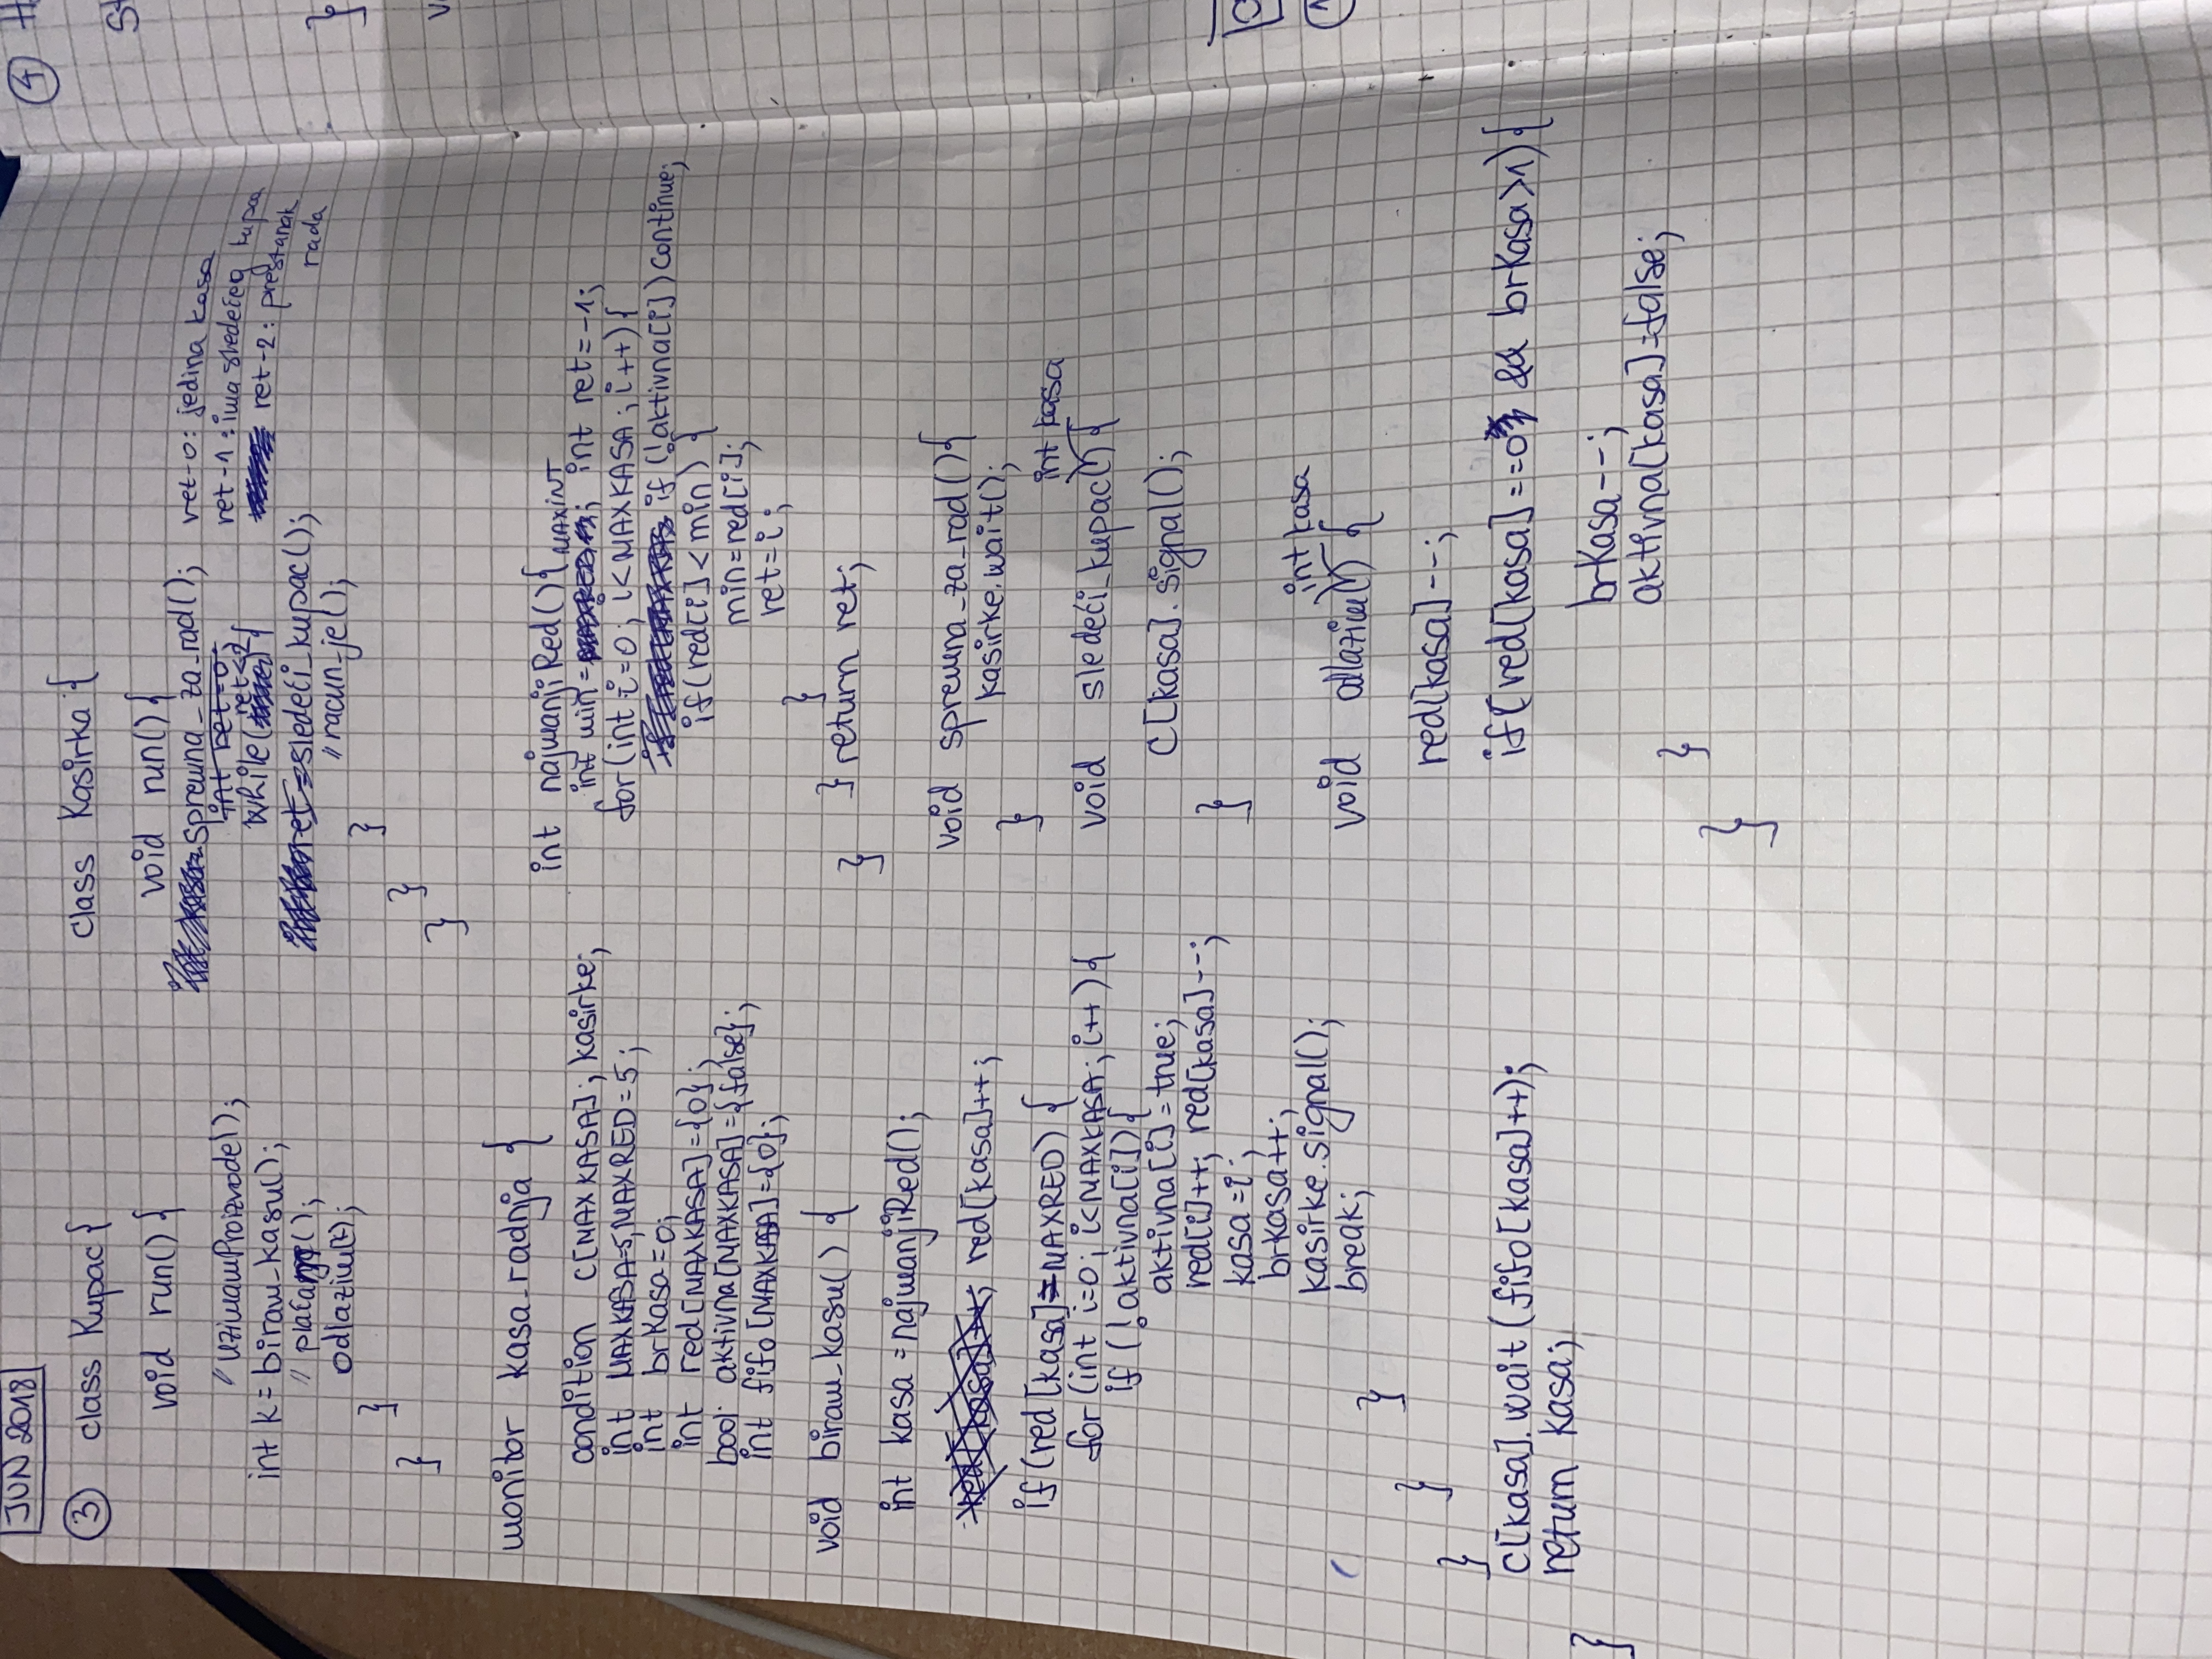 JUN 2018
③ class Kupac {
void run() {
// uzimamProizvode();
int k = biram_kasu();
// placanje();
odlazim(k);
}
}
class Kasirka {
void run() {
spremna_za_rad();
int ret=0;
while(ret<2){
ret=sledeći_kupac();
// racun_je();
}
}
}
ret-0: jedina kasa
ret-1: ima sledećeg kupca
ret-2: prestanak
rada
monitor kasa_radnja {
condition c[MAXKASA], kasirke;
int MAXKASA=5, MAXRED=5;
int brKasa=0;
int red[MAXKASA]={0};
bool aktivna[MAXKASA]={false};
int fifo[MAXKASA]={0};
void biram_kasu() {
int kasa = najmanjiRed();
red[kasa]++; red[kasa]++;
if(red[kasa]==MAXRED) {
for(int i=0; i<MAXKASA; i++){
if (!aktivna[i]){
aktivna[i]=true;
red[i]++; red[kasa]--;
kasa=i;
brkasa++;
kasirke.signal();
break;
}
}
}
c[kasa].wait(fifo[kasa]++);
return kasa;
}
int najmanjiRed(){
int min = MAXINT; int ret=-1;
for(int i=0; i<MAXKASA; i++){
if(!aktivna[i]) continue;
if(red[i]<min) {
min=red[i];
ret=i;
}
} return ret;
}
void spremna_za_rad(){
kasirke.wait();
}
void sledeći_kupac(int kasa){
c[kasa].signal();
}
void odlazim(int kasa) {
red[kasa]--;
if(red[kasa]==0 && brKasa>1){
brKasa--;
aktivna[kasa]=false;
}
}
④